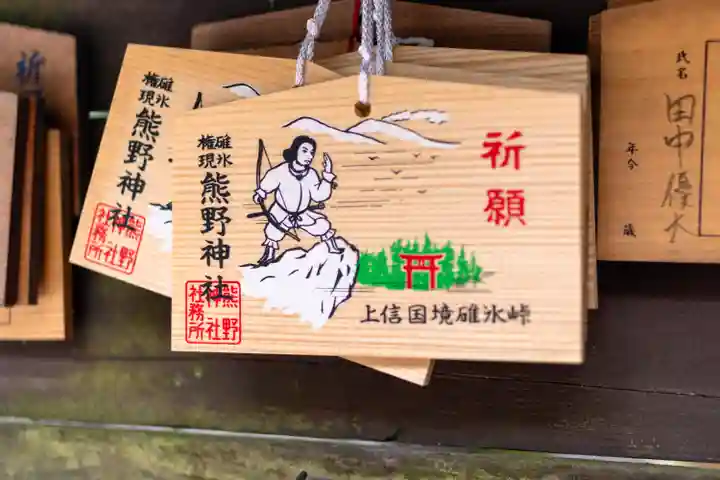 祈
碓氷
権現
熊野神社
熊野
神社
社務所
碓氷
権現
熊野神社
熊野
神社
社務所
祈願
上信国境碓氷峠
氏名
田中優太
年令
歳